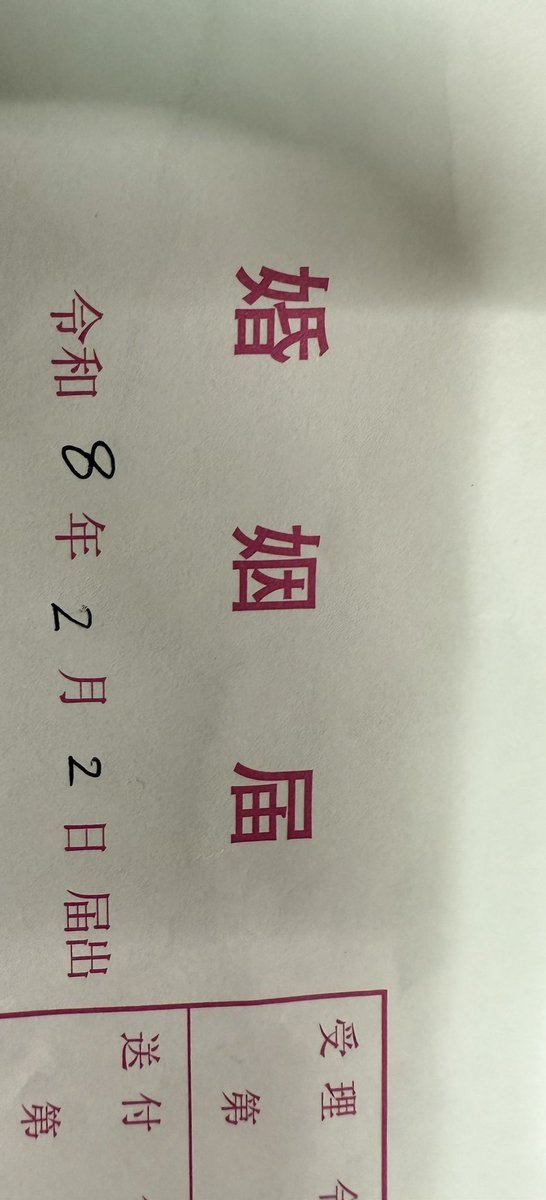 婚姻届
令和8年2月2日届出
受理
第
送付
第